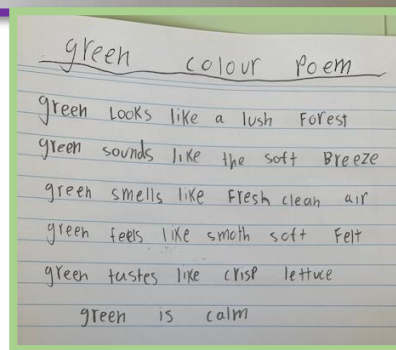 green colour Poem
green Looks like a lush Forest
green sounds like the soft Breeze
green smells like Fresh clean air
green feels like smoth soft Felt
green tastes like crisp lettuce
green is calm